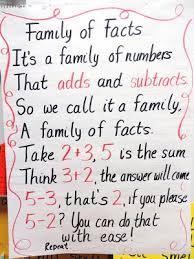 Family of Facts
It's a family of numbers
That adds and subtracts.
So we call it a family.
A family of facts.
Take 2+3, 5 is the sum
Think 3+2, the answer will come
5-3, that's 2, if you please
5-2? You can do that
with ease!
Repeat